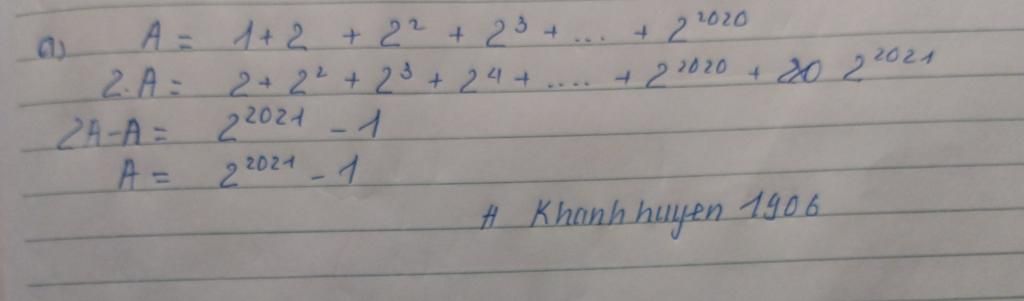 a) A = 1 + 2 + 2² + 2³ + ... + 2²⁰²⁰
2.A = 2 + 2² + 2³ + 2⁴ + .... + 2²⁰²⁰ + 2²⁰²¹
2A - A = 2²⁰²¹ - 1
A = 2²⁰²¹ - 1
# Khanhhuyen 1906